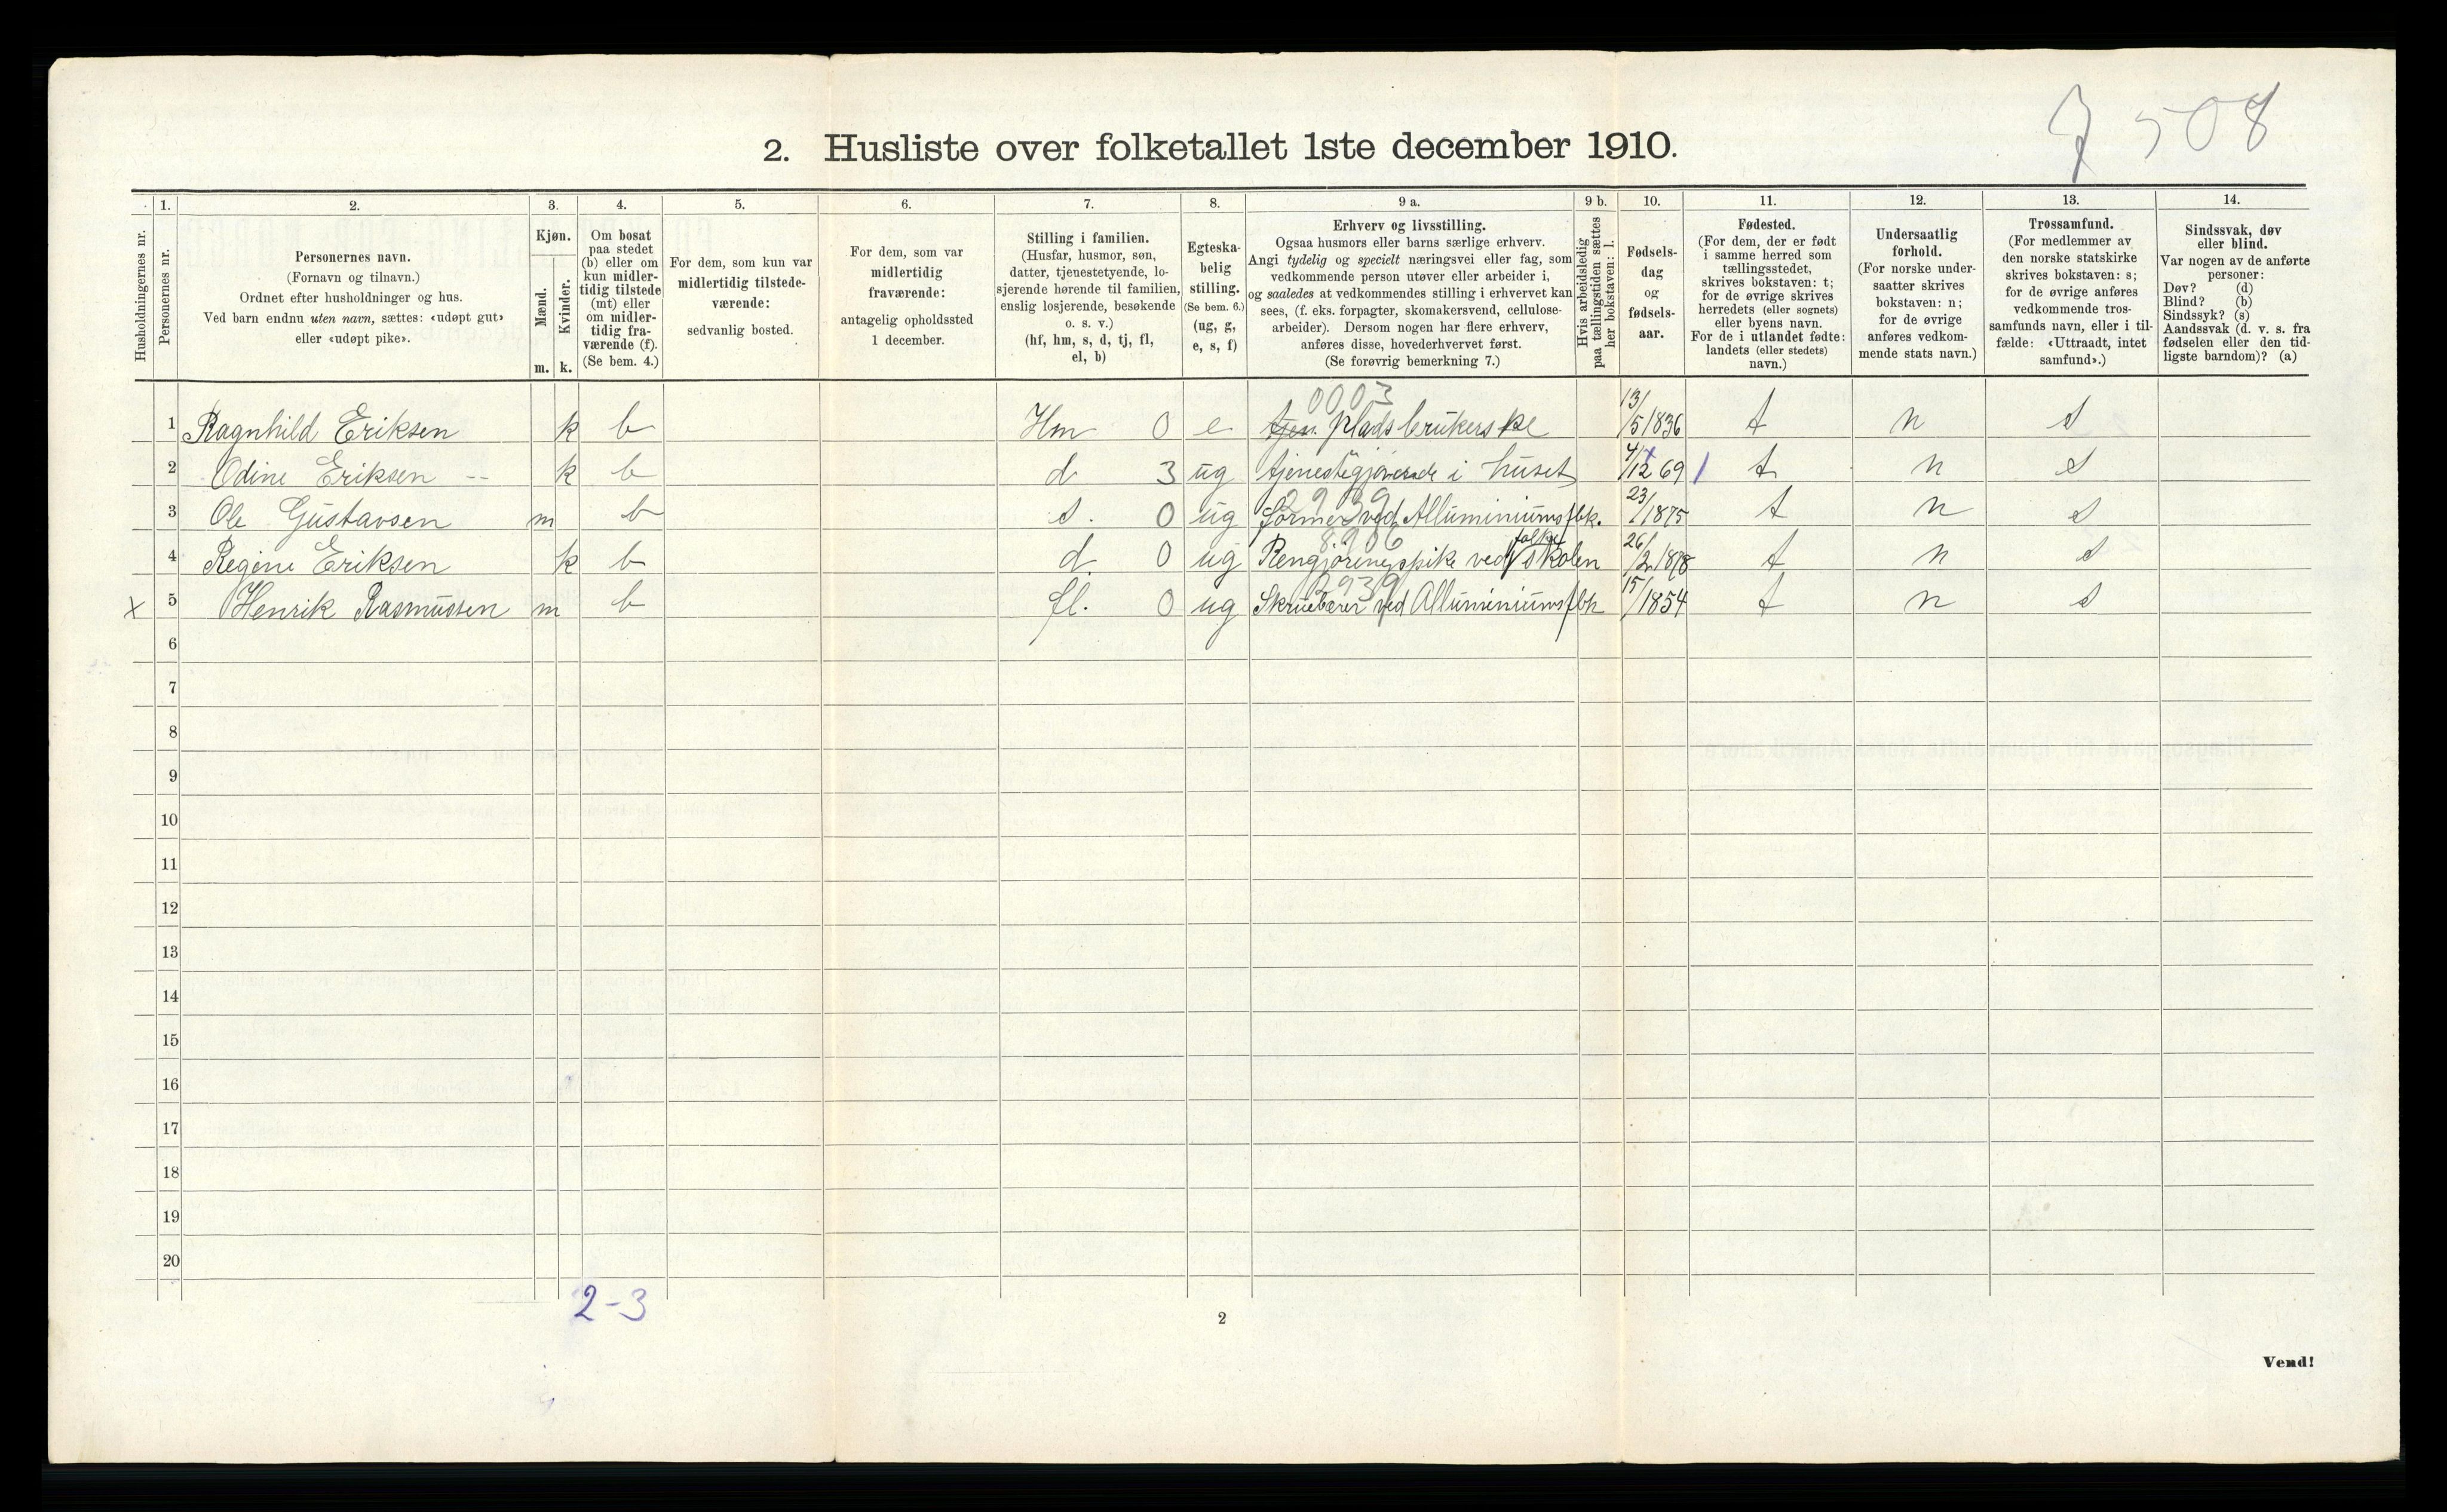 7 508
2. Husliste over folketallet 1ste december 1910.
Husholdningernes nr.
1.
Personernes nr.
2.
Personernes navn.
(Fornavn og tilnavn.)
Ordnet efter husholdninger og hus.
Ved barn endnu uten navn, sættes: «udøpt gut»
eller «udøpt pike».
3.
Kjøn.
Mænd.
Kvinder.
m. k.
4.
Om bosat
paa stedet
(b) eller om
kun midler-
tidig tilstede
(mt) eller
om midler-
tidig fra-
værende (f).
(Se bem. 4.)
5.
For dem, som kun var
midlertidig tilstede-
værende:
sedvanlig bosted.
6.
For dem, som var
midlertidig
fraværende:
antagelig opholdssted
1 december.
7.
Stilling i familien.
(Husfar, husmor, søn,
datter, tjenestetyende, lo-
sjerende hørende til familien,
enslig losjerende, besøkende
o. s. v.)
(hf, hm, s, d, tj, fl,
el, b)
8.
Egteska-
belig
stilling.
(Se bem. 6.)
(ug, g,
e, s, f)
9 a.
Erhverv og livsstilling.
Ogsaa husmors eller barns særlige erhverv.
Angi tydelig og specielt næringsvei eller fag, som
vedkommende person utøver eller arbeider i,
og saaledes at vedkommendes stilling i erhvervet kan
sees, (f. eks. forpagter, skomakersvend, cellulose-
arbeider). Dersom nogen har flere erhverv,
anføres disse, hovederhvervet først.
(Se forøvrig bemerkning 7.)
9 b.
Hvis arbeidsledig
paa tællingstiden sættes
her bokstaven: l.
10.
Fødsels-
dag
og
fødsels-
aar.
11.
Fødested.
(For dem, der er født
i samme herred som
tællingsstedet,
skrives bokstaven: t;
for de øvrige skrives
herredets (eller sognets)
eller byens navn.
For de i utlandet fødte:
landets (eller stedets)
navn.)
12.
Undersaatlig
forhold.
(For norske under-
saatter skrives
bokstaven: n;
for de øvrige
anføres vedkom-
mende stats navn.)
13.
Trossamfund.
(For medlemmer av
den norske statskirke
skrives bokstaven: s;
for de øvrige anføres
vedkommende tros-
samfunds navn, eller i til-
fælde: «Uttraadt, intet
samfund».)
14.
Sindssvak, døv
eller blind.
Var nogen av de anførte
personer:
Døv? (d)
Blind? (b)
Sindssyk? (s)
Aandssvak (d. v. s. fra
fødselen eller den tid-
ligste barndom)? (a)
0003
1 Ragnhild Eriksen k b Hm 0 e tjen. pladsbrukerske 13/5 1836 t n s
2 Odine Eriksen -- k b d 3 ug tjenestegjørende i huset 4/12 69 1 t n s
2939
3 Ole Gustavsen m b s. 0 ug former ved Alluminiumsfbk. 23/ 1875 t n s
8906
folke
4 Regine Eriksen k b d 0 ug Rengjøringspike ved skolen 26/2 1878 t n s
2939
x 5 Henrik Rasmussen m b fl. 0 ug Skruebærer ved Alluminiumsfbk 15/ 1854 t n s
6
7
8
9
10
11
12
13
14
15
16
17
18
19
20
2-3
2
Vend!